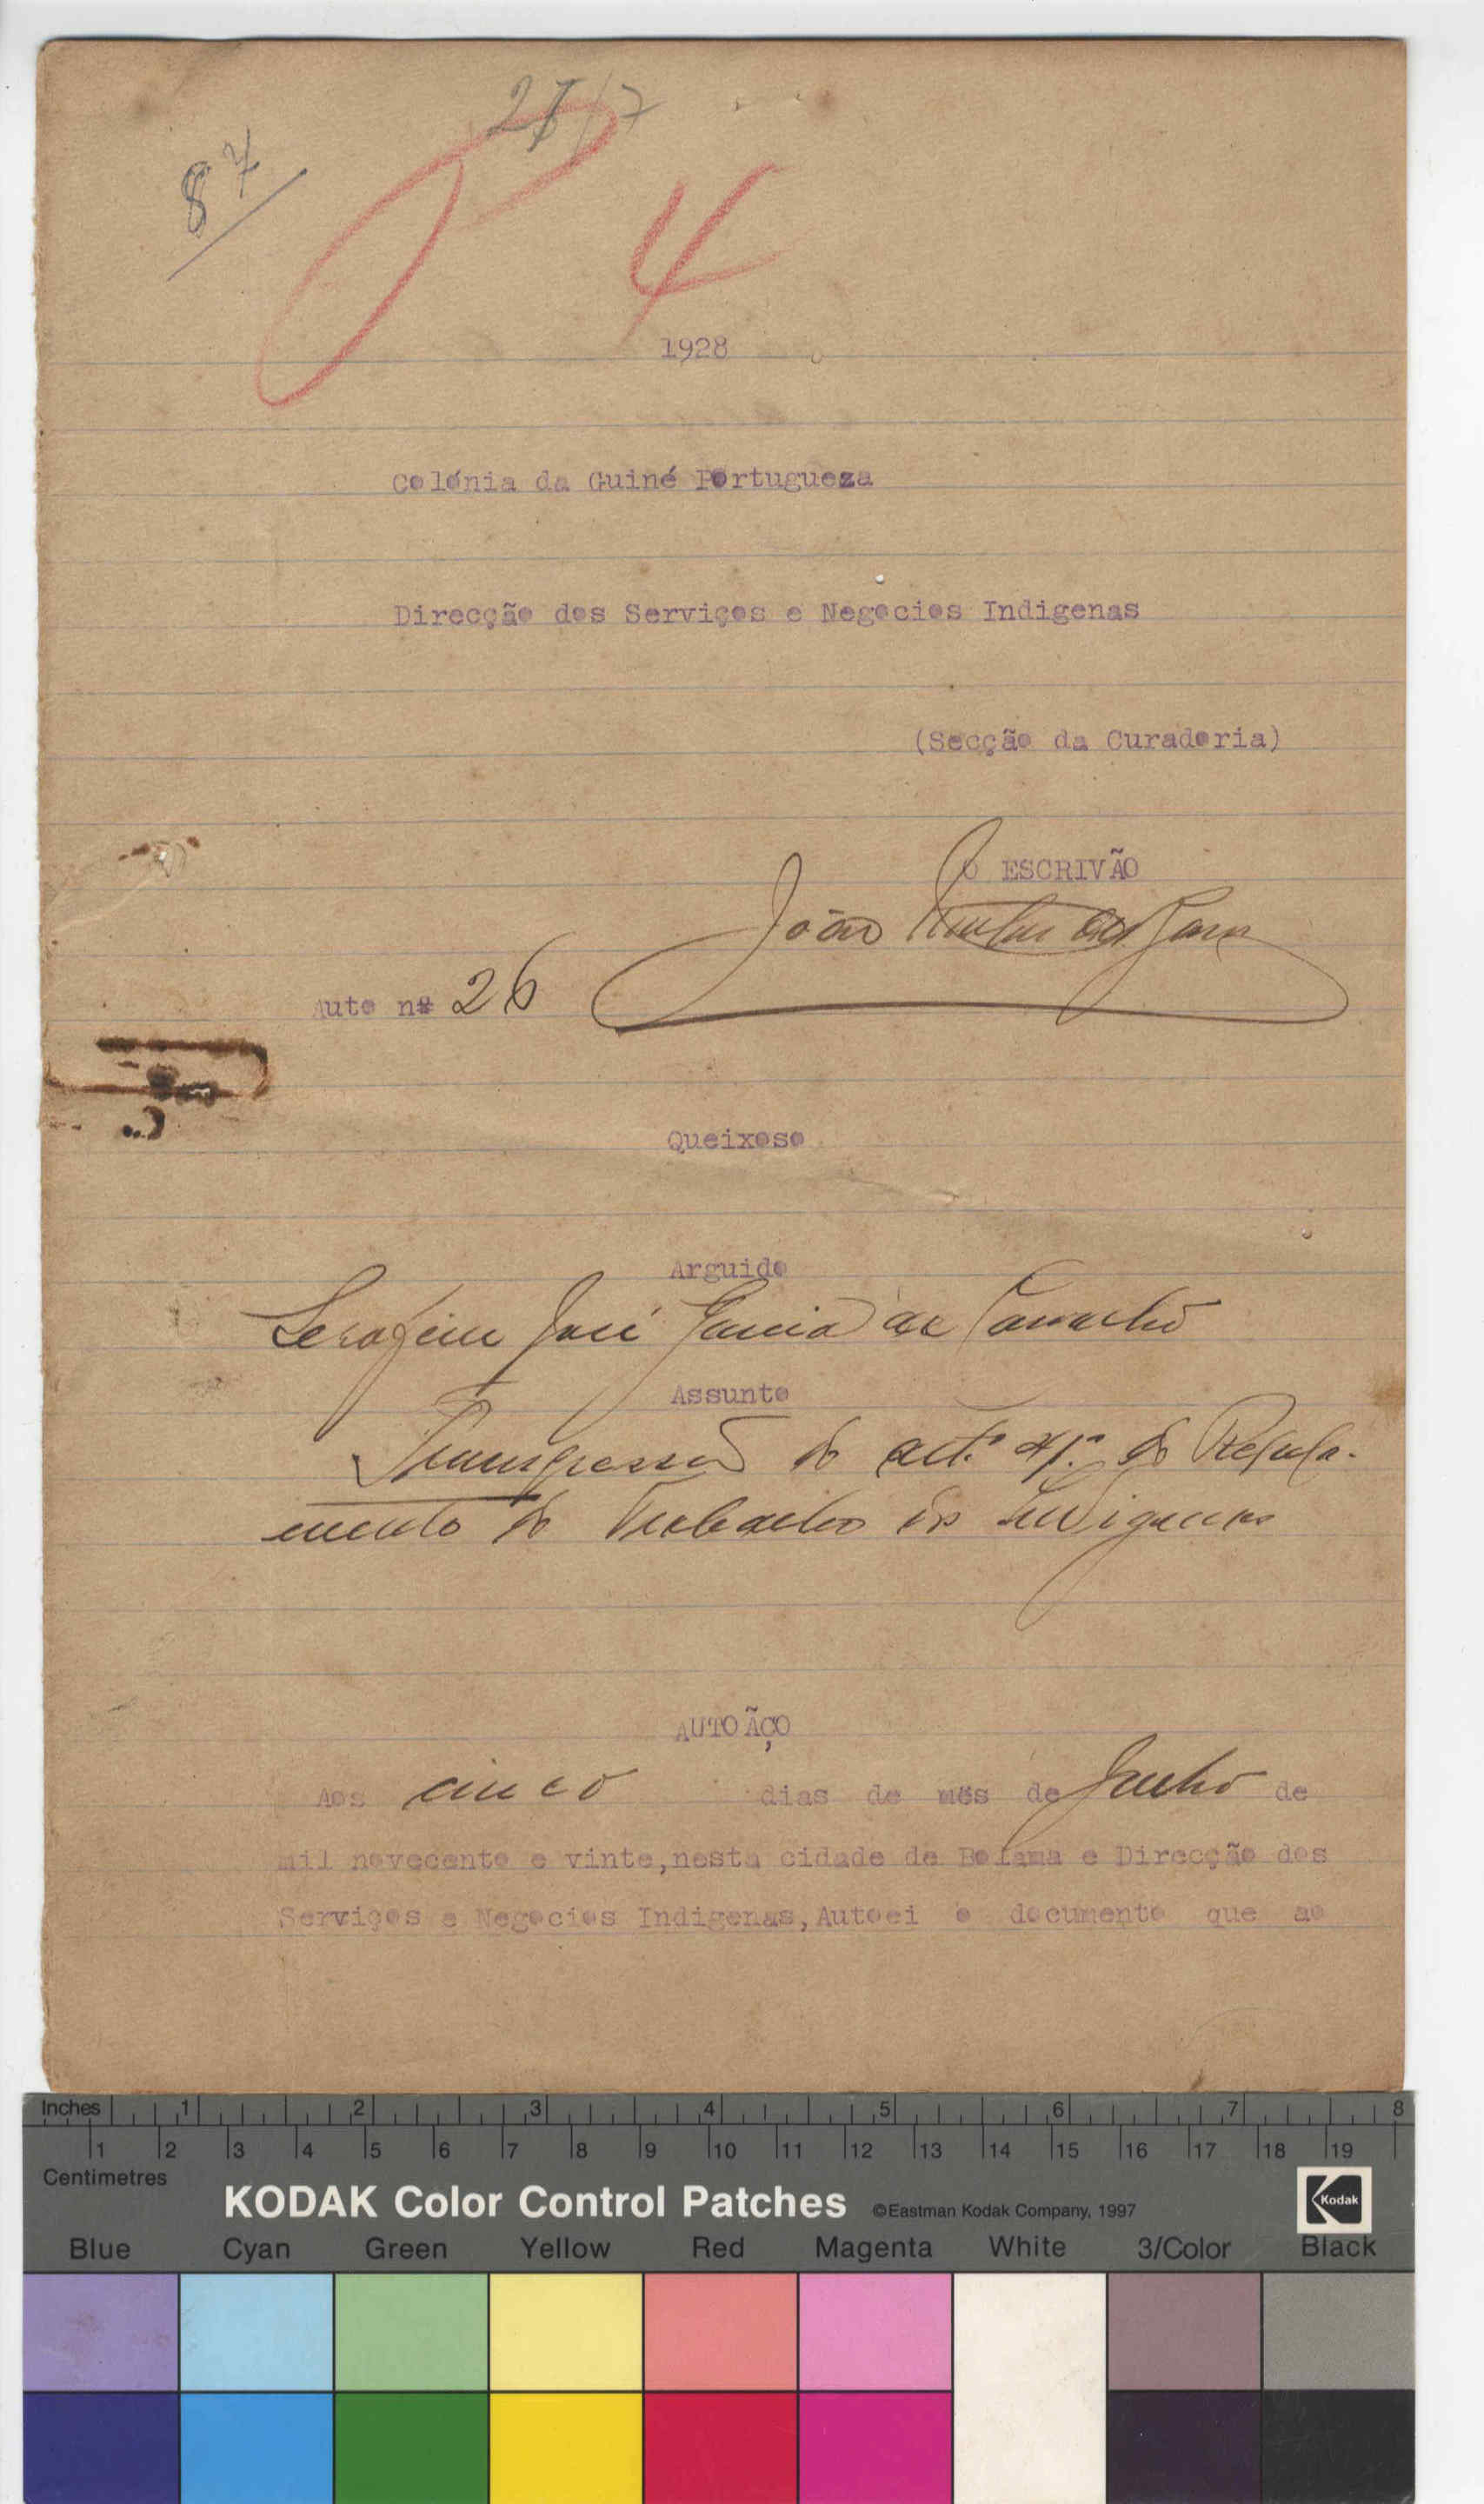 27/7
87
P 4
1928
Colónia da Guiné Portugueza
Direcção dos Serviços e Negocios Indigenas
(Secção da Curadoria)
O ESCRIVÃO
João
Auto nº 26
Queixoso
Arguido
Serafim José Garcia de Carvalho
Assunto
Transgressão do artº 41º do Regula-
mento do Trabalho dos Indigenas
AUTOÃÇO
Aos cinco dias do mês de Junho de
mil novecento e vinte, nesta cidade de Bolama e Direcção dos
Serviços e Negocios Indigenas, Autoei o documento que ao
Inches 1 2 3 4 5 6 7 8
1 2 3 4 5 6 7 8 9 10 11 12 13 14 15 16 17 18 19
Centimetres
KODAK Color Control Patches ©Eastman Kodak Company, 1997 Kodak
Blue Cyan Green Yellow Red Magenta White 3/Color Black